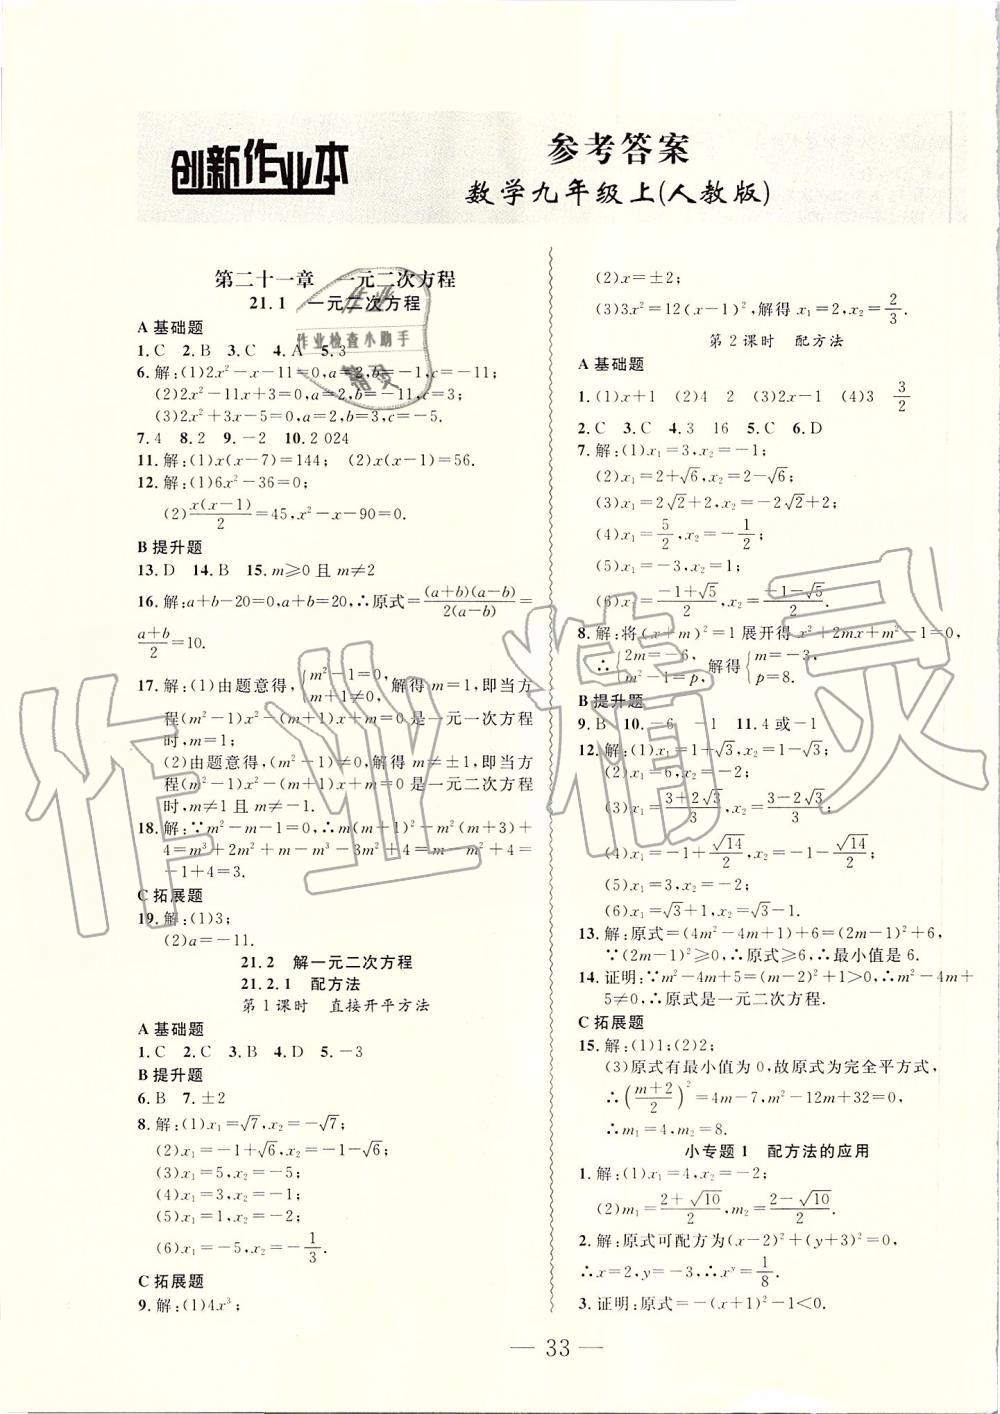 创新作业本
参考答案
数学九年级上(人教版)
第二十一章 一元二次方程
21.1 一元二次方程
A 基础题
1.C 2.B 3.C 4.A 5.3
6.解:(1)2x²-x-11=0,a=2,b=-1,c=-11;
(2)2x²-11x+3=0,a=2,b=-11,c=3;
(3)2x²+3x-5=0,a=2,b=3,c=-5.
7.4 8.2 9.-2 10.2 024
11.解:(1)x(x-7)=144; (2)x(x-1)=56.
12.解:(1)6x²-36=0;
(2)x(x-1)/2=45,x²-x-90=0.
B 提升题
13.D 14.B 15.m≥0 且 m≠2
16.解:a+b-20=0,a+b=20,∴原式=(a+b)(a-b)/2(a-b)=
(a+b)/2=10.
17.解:(1)由题意得,{m²-1=0, m+1≠0, 解得 m=1,即当方
程(m²-1)x²-(m+1)x+m=0 是一元一次方程
时,m=1;
(2)由题意得,(m²-1)≠0,解得 m≠±1,即当方
程(m²-1)x²-(m+1)x+m=0 是一元二次方程
时,m≠1 且 m≠-1.
18.解:∵m²-m-1=0,∴m(m+1)²-m²(m+3)+
4=m³+2m²+m-m³-3m²+4=m-m²+4=
-1+4=3.
C 拓展题
19.解:(1)3;
(2)a=-11.
21.2 解一元二次方程
21.2.1 配方法
第 1 课时 直接开平方法
A 基础题
1.C 2.C 3.B 4.D 5.-3
B 提升题
6.B 7.±2
8.解:(1)x₁=√7,x₂=-√7;
(2)x₁=-1+√6,x₂=-1-√6;
(3)x₁=5,x₂=-5;
(4)x₁=3,x₂=-1;
(5)x₁=1,x₂=-2;
(6)x₁=-5,x₂=-1/3.
C 拓展题
9.解:(1)4x³;
(2)x=±2;
(3)3x²=12(x-1)²,解得 x₁=2,x₂=2/3.
第 2 课时 配方法
A 基础题
1.(1)x+1 (2)4 2 (3)2x-1 (4)3 3/2
2.C 3.C 4.3 16 5.C 6.D
7.解:(1)x₁=3,x₂=-1;
(2)x₁=2+√6,x₂=2-√6;
(3)x₁=2√2+2,x₂=-2√2+2;
(4)x₁=5/2,x₂=-1/2;
(5)x₁=-3,x₂=1;
(6)x₁=(-1+√5)/2,x₂=(-1-√5)/2.
8.解:将(x+m)²=1 展开得 x²+2mx+m²-1=0,
∴{2m=-6, m²-1=p, 解得{m=-3, p=8.
B 提升题
9.B 10.-6 -1 11.4 或-1
12.解:(1)x₁=1+√3,x₂=1-√3;
(2)x₁=3,x₂=2;
(3)x₁=(3+2√3)/3,x₂=(3-2√3)/3;
(4)x₁=-1+√14/2,x₂=-1-√14/2;
(5)x₁=3,x₂=-1;
(6)x₁=√3+1,x₂=√3-1.
13.解:原式=(4m²-4m+1)+6=(2m-1)²+6,
∵(2m-1)²≥0,∴原式≥6,∴最小值是 6.
14.证明:∵m²-4m+5=(m-2)²+1>0,∴m²-4m+
5≠0,∴原式是一元二次方程.
C 拓展题
15.解:(1)1;(2)2;
(3)原式有最小值为 0,故原式为完全平方式,
∴((m+2)/2)²=4m-7,m²-12m+32=0,
∴m₁=4,m₂=8.
小专题 1 配方法的应用
1.解:(1)x₁=4,x₂=-2;
(2)m₁=(2+√10)/2,m₂=(2-√10)/2.
2.解:原式可配方为(x-2)²+(y+3)²=0,
∴x=2,y=-3,∴xʸ=1/8.
3.证明:原式=-(x+1)²-1<0.
— 33 —
作业
作业检查小助手
精灵
作业精灵